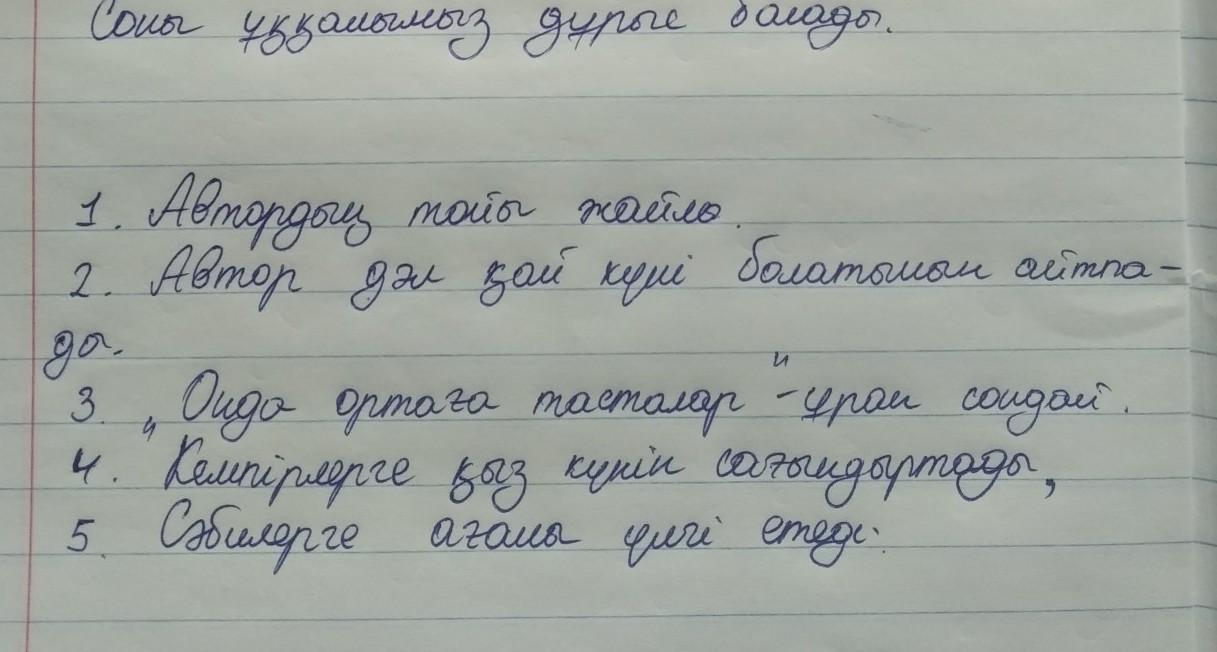 Соны ұққанымыз дұрыс болады.
1. Автордың тойы жайлы.
2. Автор дәл қай күні болатынын айтпа-
ды.
3. "Онда ортаға тасталар" - ұран сондай.
4. Кемпірлерге қыз күнін сағындыртады,
5. Сәбилерге ағаны үлгі етеді.